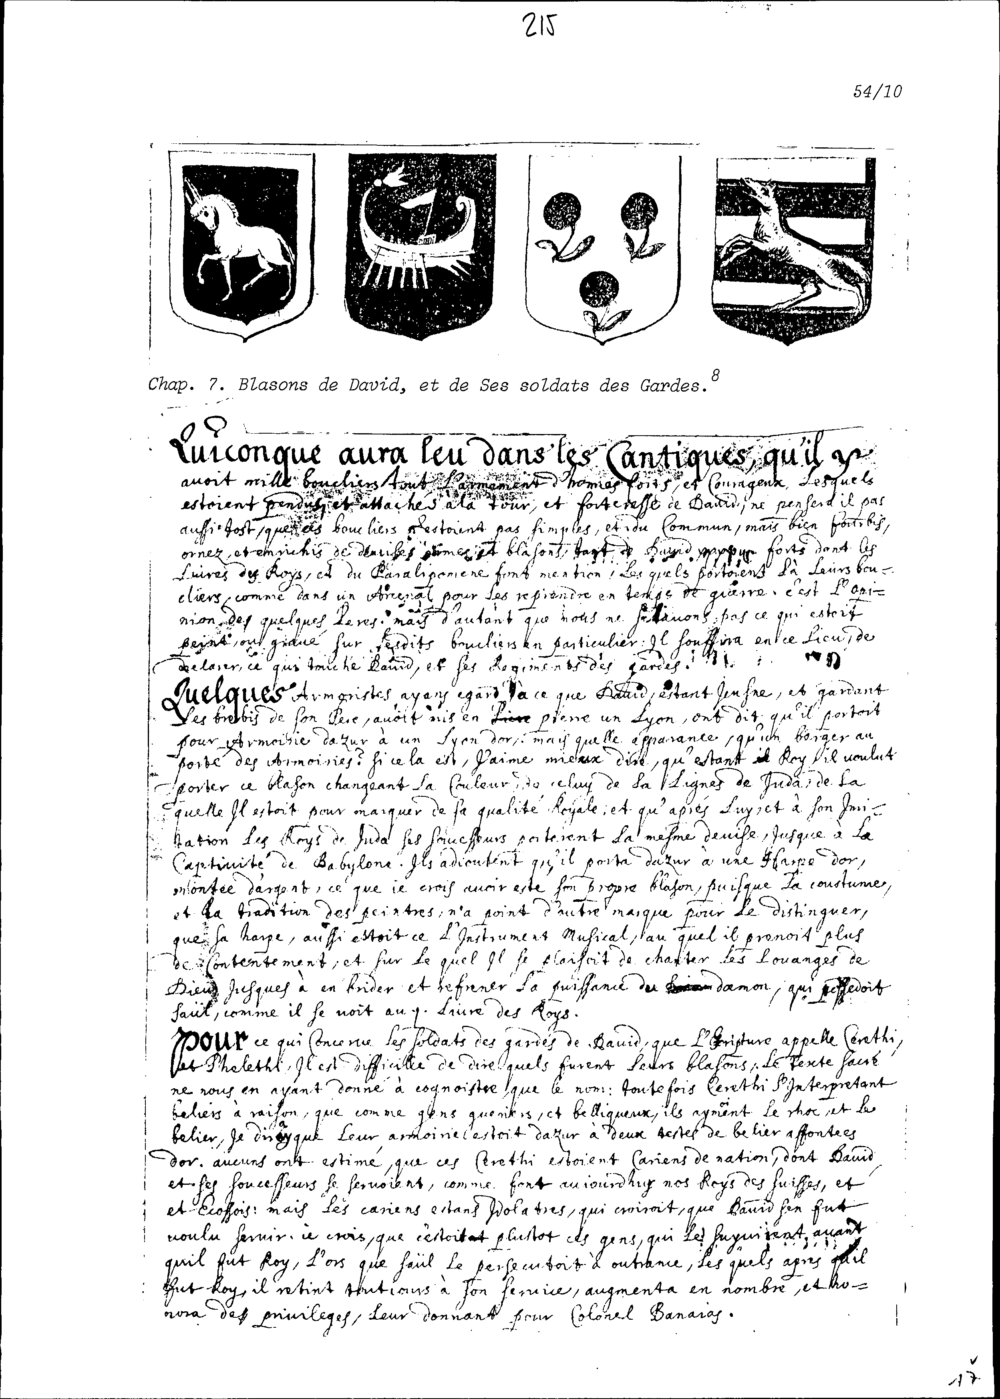 215
54/10
Chap. 7. Blasons de David, et de Ses soldats des Gardes.8
Quiconque aura leu dans les Cantiques, qu'il y
avoit mille boucliers tout l'armement d'homes forts, et Courageux, Lesquels
estoient pendus, et attachés a la tour, et forteresse de David, ne pensera il pas
aussi tost, que ces boucliers n'estoient pas simples, et du Commun, mais bien fourbis,
ornez, et enrichis de devises, armes et blasons, tant de David forts dont les
Livres des Roys, et du Paralipomene font mention, Lesquels portoient là Leurs bou-
cliers, comme dans un Arcenal pour les reprendre en temps de guerre. c'est L'opi-
nion des quelques Peres: mais d'autant que nous ne sçavons pas ce qui estoit
peint, ou gravé sur lesdits boucliers en particulier: Il souffira en ce Lieu, de
declarer, ce qui touche David, et ses Regiments des gardes.
Quelques Armoristes ayans egard à ce que David, estant Jeusne, et gardant
Les brebis de son Pere, auoit mis en piece un Lyon, ont dit, qu'il portoit
pour Armoirie dazur à un Lyon dor, mais quelle apparance, qu'un berger au
porté des Armoiries? si cela est, J'aime mieux dire, qu'estant Roy, il voulut
porter ce blason changeant La Couleur, de celuy de La Lignes de Juda, de La
quelle Il estoit pour marquer de sa qualité Royale, et qu'aprés Luy, et à son Imi-
tation Les Roys de Juda ses successeurs porterent La mesme devise, Jusque a La
Captivité de Babylone. Ils adioutent qu'il porta dazur à une Harpe dor,
montée d'argent, ce que ie crois auoir esté son propre blason, puisque La coustume,
et La tradition des peintres, n'a point d'autre marque pour Le distinguer,
que sa harpe, aussi estoit ce L'Instrument Musical, au quel il prenoit plus
de Contentement, et sur Le quel Il se plaisoit de chanter Les Louanges de
Dieu, Jusques à en brider et refrener La puissance du dæmon, qui possedoit
saül, comme il se voit au 1. Livre des Roys.
Pour ce qui Concerne Les soldats des gardes de David, que L'Escripture appelle Cerethi,
et Phelethi, Il est difficille de dire quels furent Leurs blasons, Le Texte sacré
ne nous en ayant donné à cognoistre que le nom: toutefois Cerethi s'Interpretant
beliers à raison, que comme gens guerriers, et belliqueux, ils ayment Le choc, et Le
belier, Je diray que Leur armoirie estoit dazur à deux testes de belier affontées
dor. aucuns ont estimé, que ces Cerethi estoient Cariens de nation, dont David,
et ses successeurs se servoient, comme font au iourdhuy nos Roys des suisses, et
et Ecossois: mais Les cariens estans Idolatres, qui croiroit, que David sen fut
voulu servir. ie crois, que c'estoit plustot ces gens, qui Les suyuirent avant
quil fut Roy, L'ors que saül Le persecutoit à outrance, Les quels apres qu'il
fut Roy, il retint tousiours à son service, augmenta en nombre, et ho-
nora des privileges, Leur donnant pour Colonel Banaias.
17